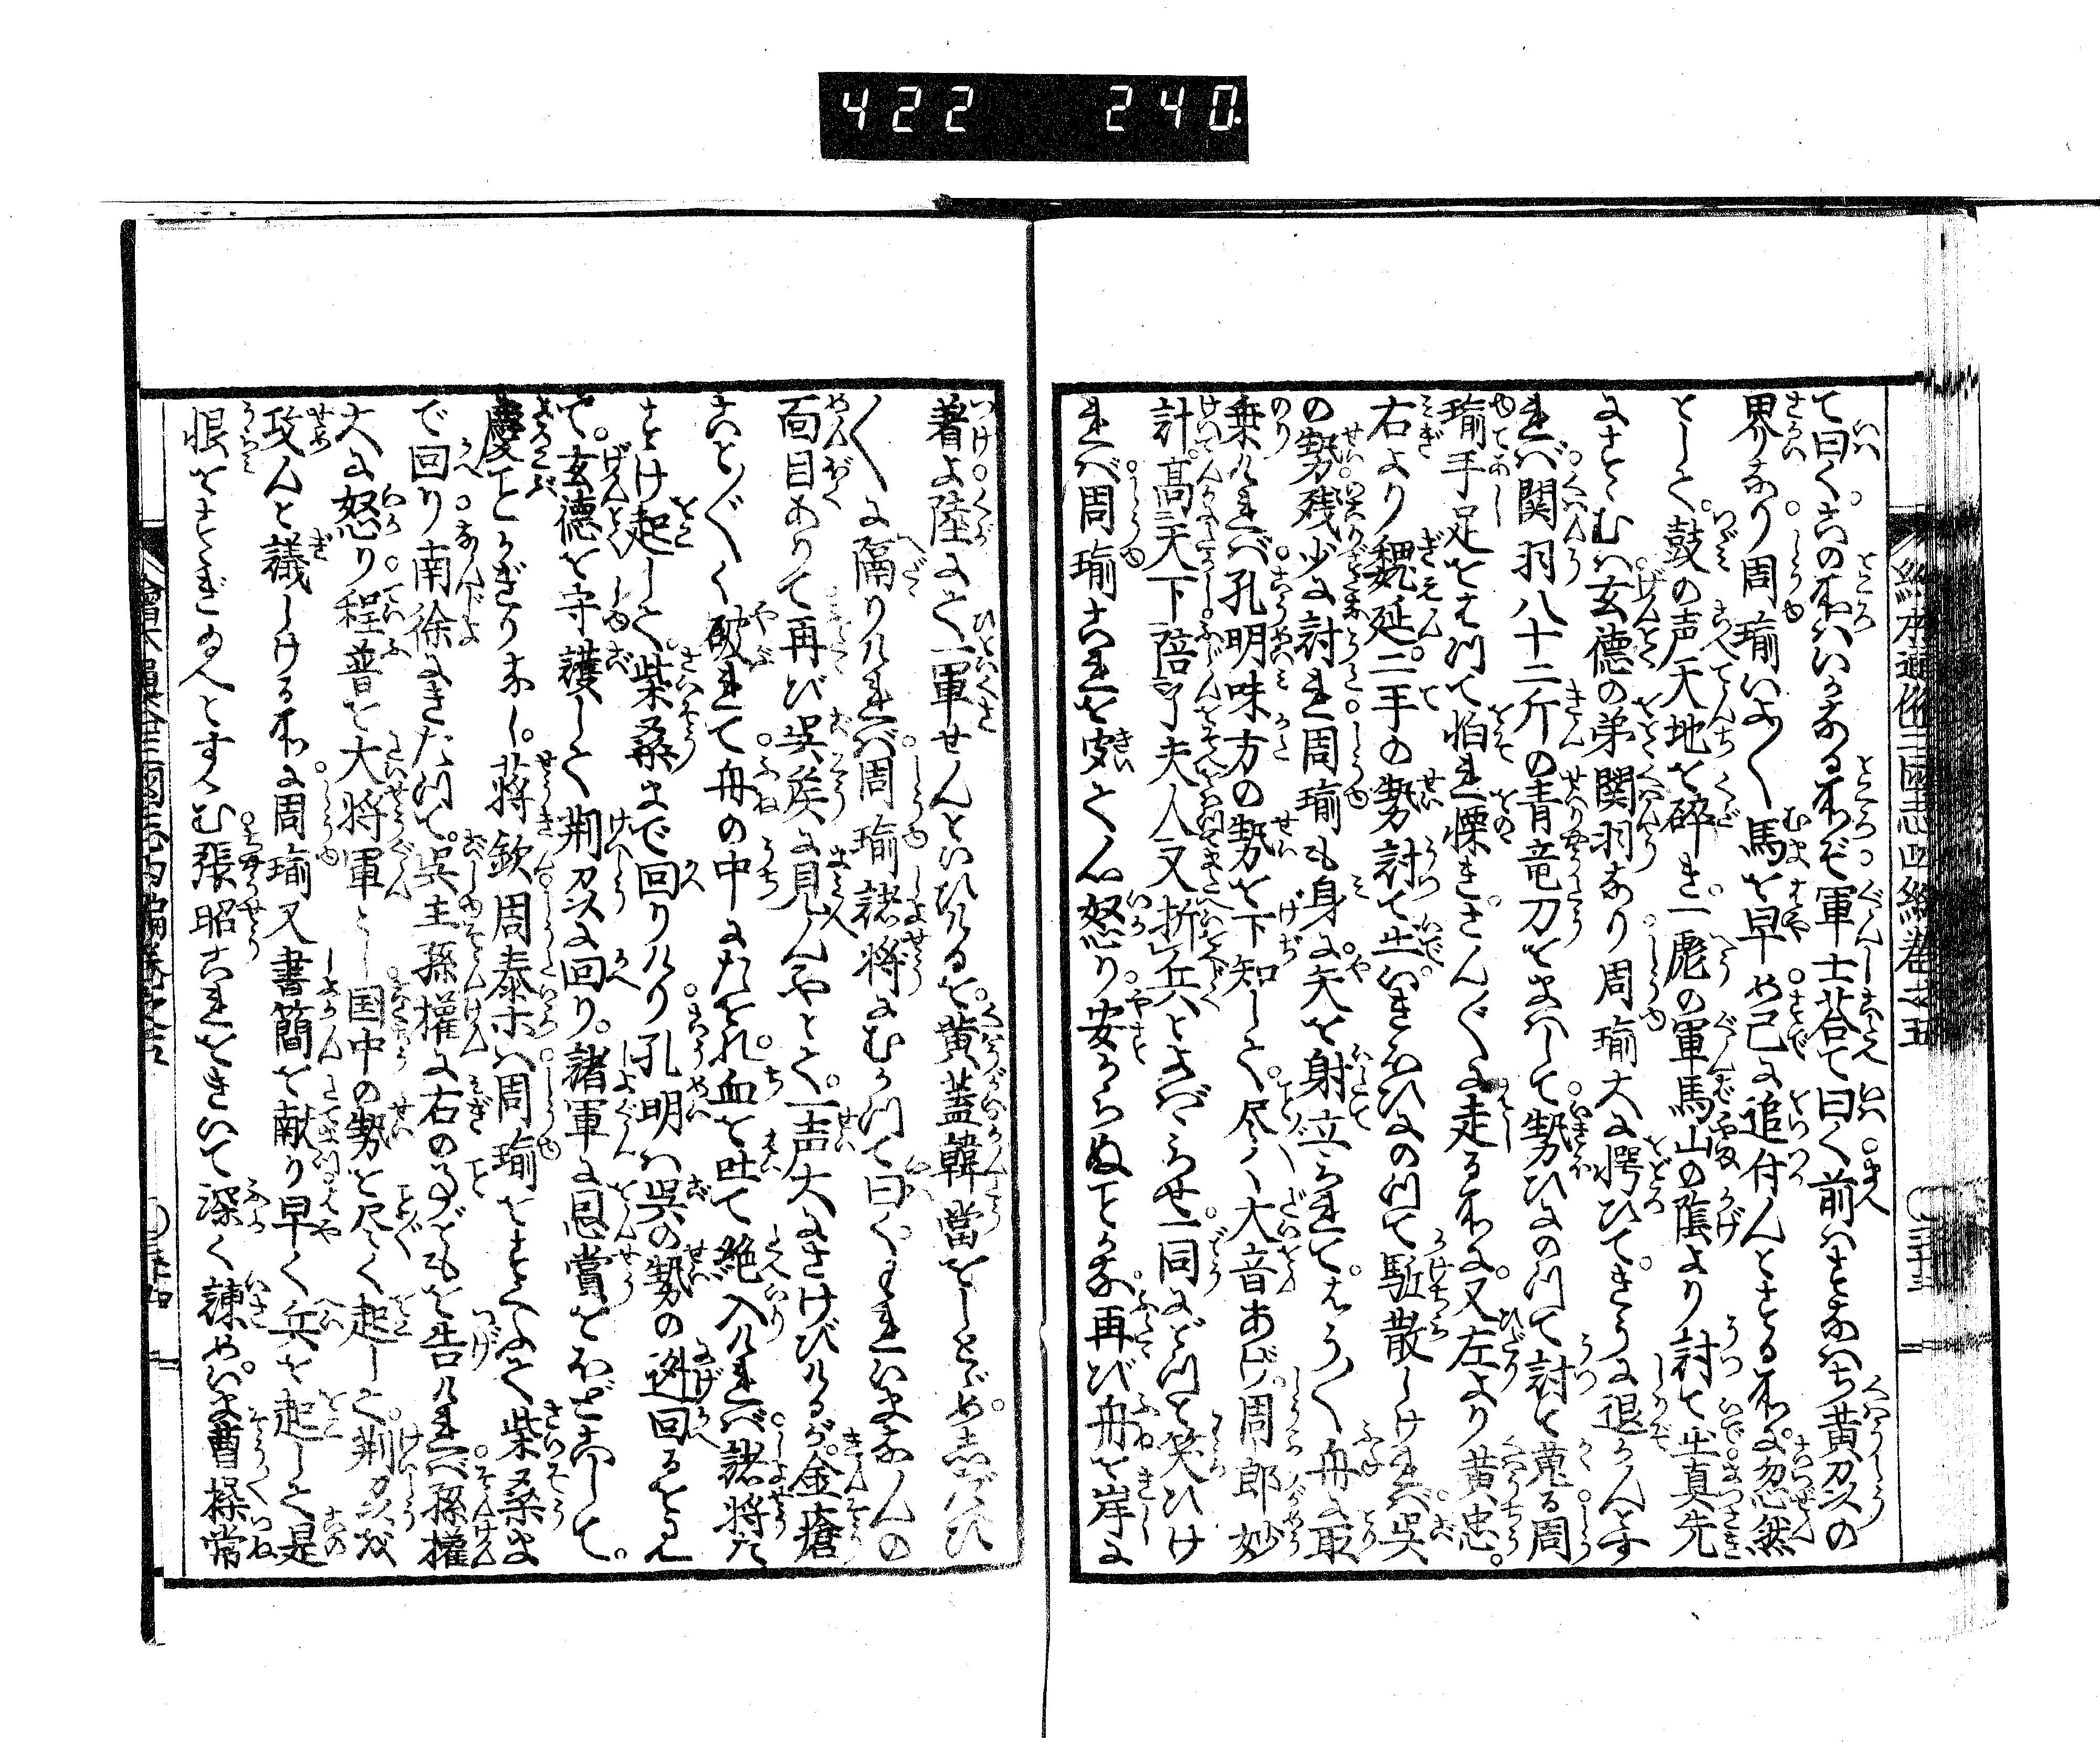 422 240
て曰くこの所はいかなる所ぞ軍士荅て曰く前はすなはち黄州の
界りなり周瑜いよ〱馬を早め已に追付んとする所に忽然
として鼓の声天地を碎き一彪の軍馬山の蔭より討て出真先
にすゝむは玄德の弟関羽なり周瑜大に愕ひてきうに退かんとす
れば関羽八十二斤の青竜刀をまはして勢ひにのつて討を蒐る周
瑜手足をもつて怕れ慄きさん〲に走る所に又左より黄忠
右より魏延二手の勢討て出いきおひにのつて駈散しければ呉
の勢残少に討れ周瑜も身に矢を射立られてはう〱舟に取
乗ければ孔明味方の勢を下知して尽く大音あげ周郎妙
計高天下陪了夫人又折兵とよばゝらせ一同にどつと笑ひけ
れば周瑜これを聞て怒り安からぬことかな再び舟を岸に
着よ陸にて一軍せんといひけるを黄蓋韓當をしとゞめしば
く隔りければ周瑜諸將にむかつて曰くわれいまなんの
面目ありて再び呉侯に見んやとて一声大にさけびけるが金瘡
こと〲く破れて舟の中にたをれ血を吐て絶入ければ諸將た
すけ起して柴桑まで回りけり孔明は呉の勢の迯回るを見
て玄德を守護して荊州に回り諸軍に恩賞をほどこして
慶ことかぎりなし蒋欽周泰等は周瑜をたすけて柴桑ま
で回り南徐にきたつて呉主孫權に右の事どもを告ければ孫權
大に怒り程普を大将軍とし国中の勢を尽く起して荊州を
攻んと議しける所に周瑜又書簡を献り早く兵を起して是
恨をすゝぎ給へとすゝむ張昭これをきいて深く諫めいま曹操常